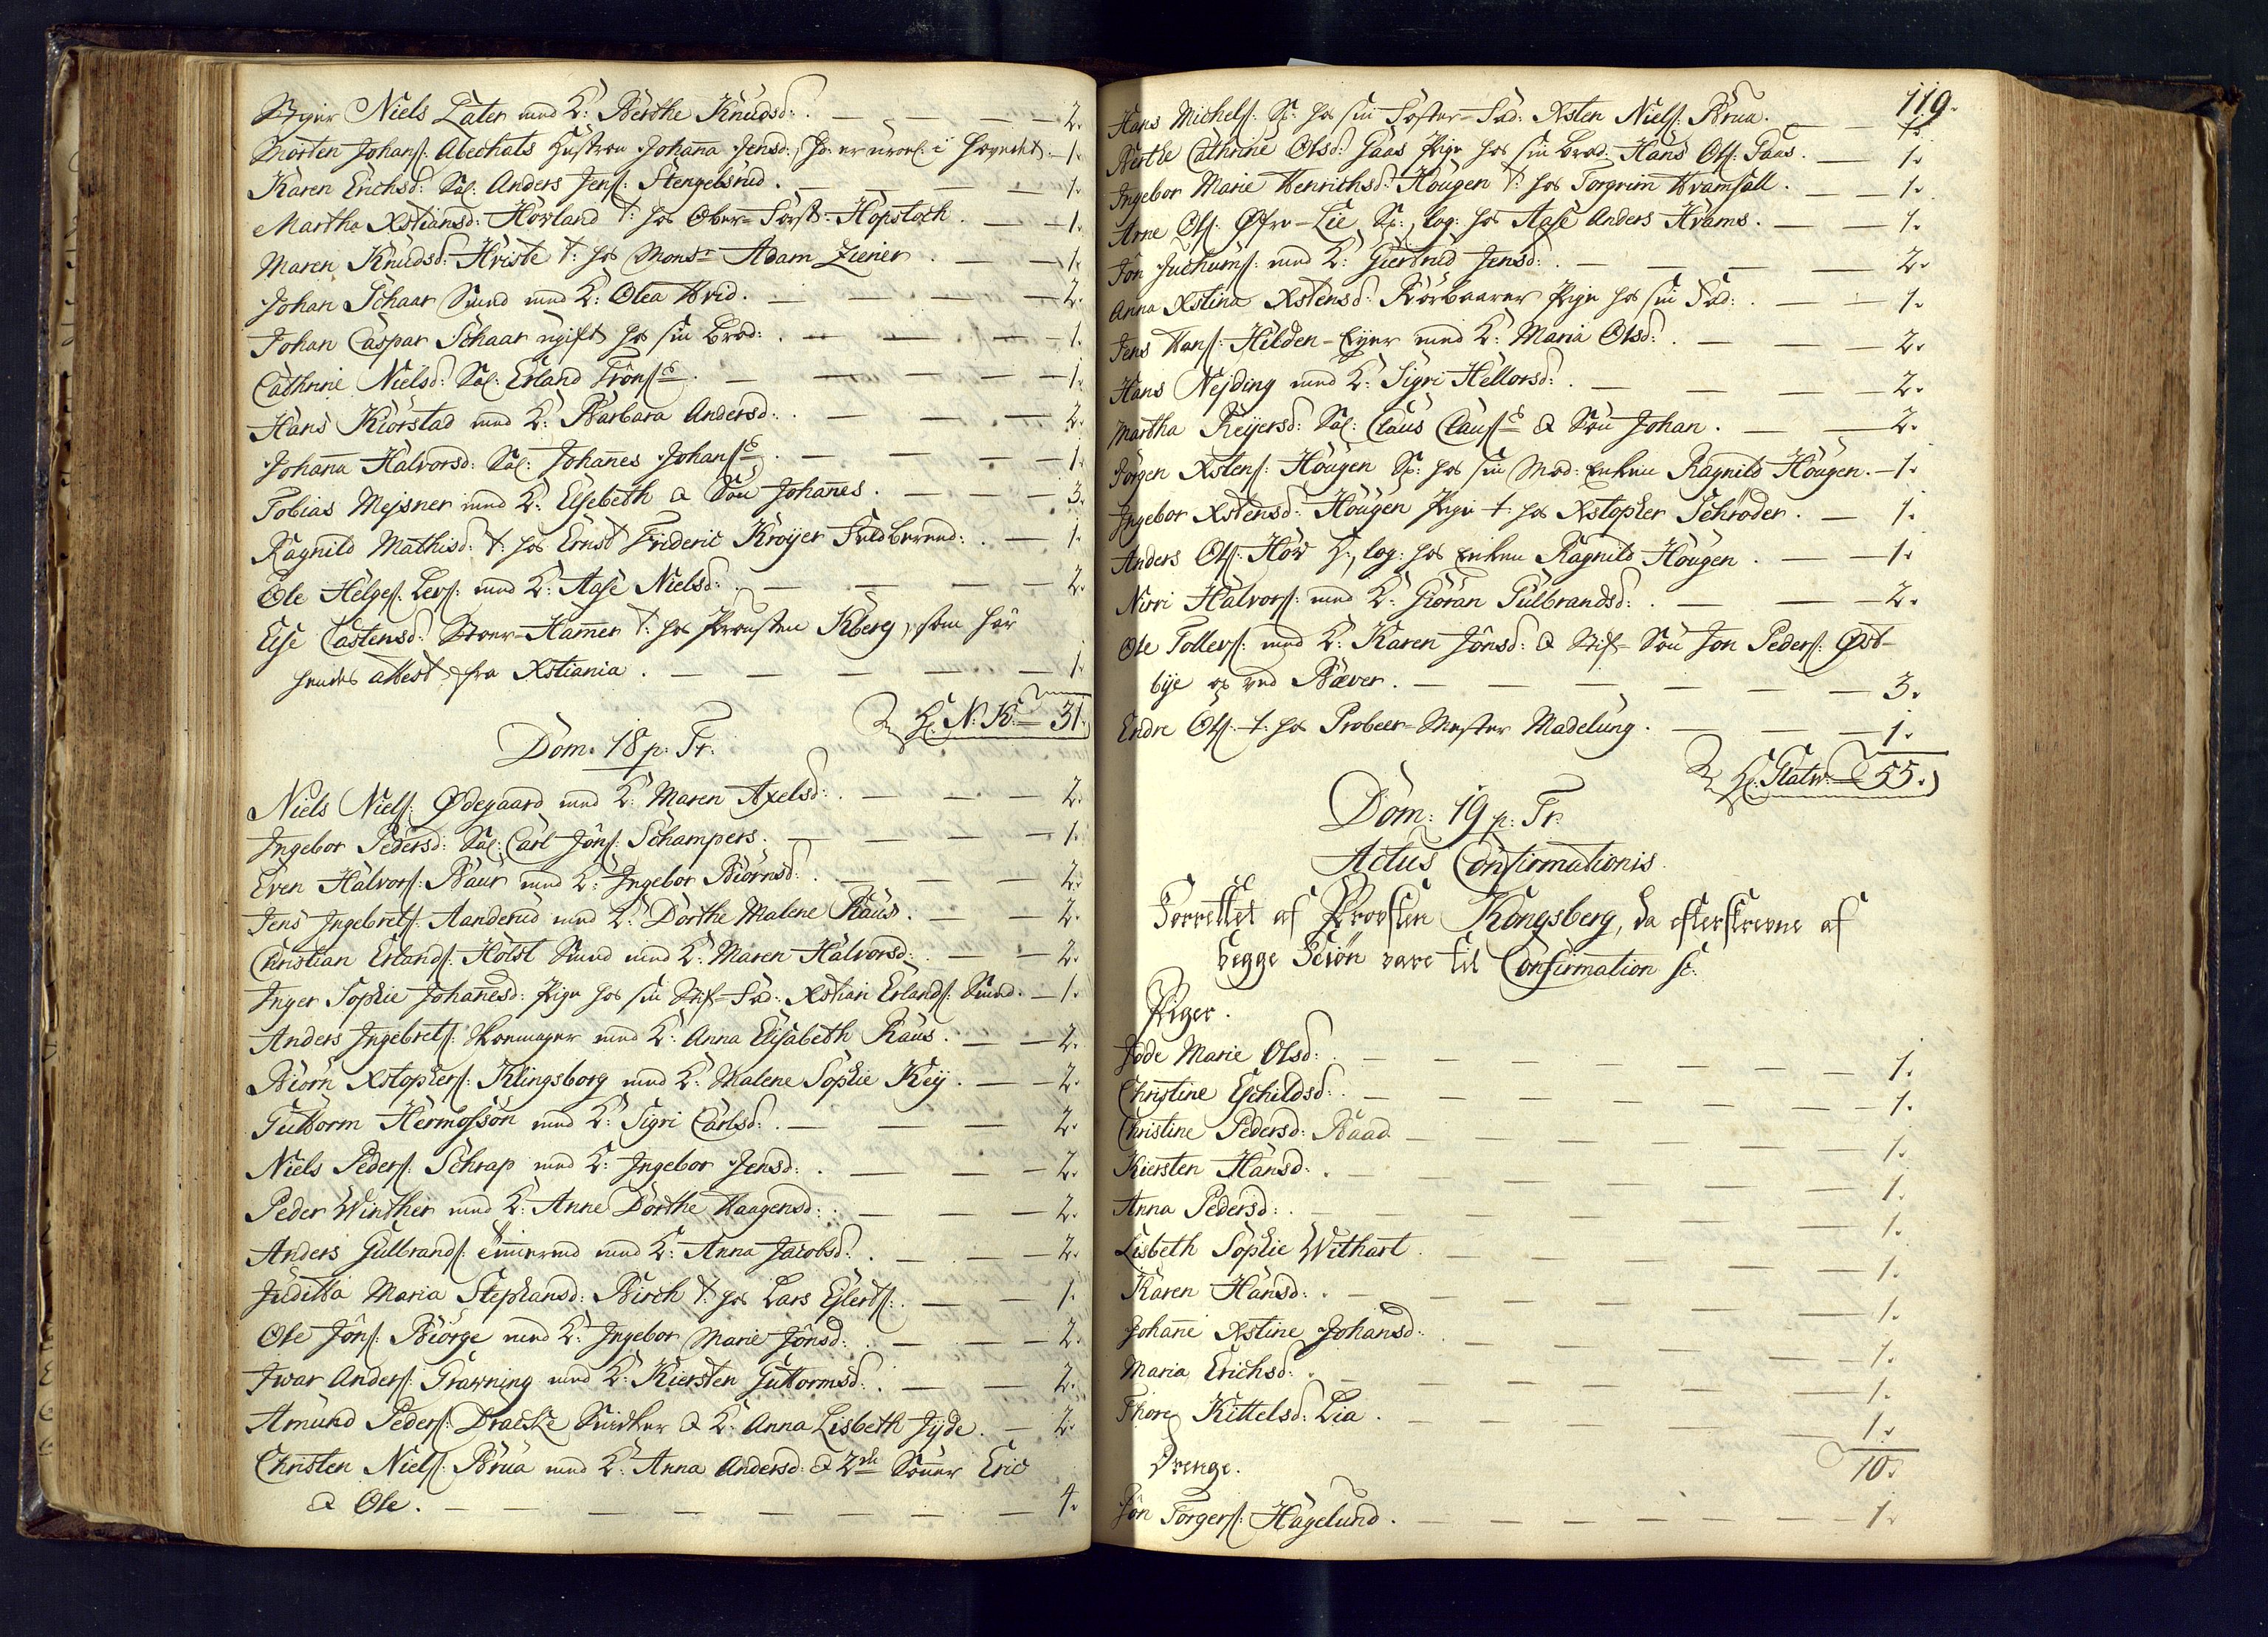 Niels Later med K: Berthe Knudsd: . — — — 2.
Morten Johans: Abechats Hustrue Johanna Jensd: , i Hovedet. — 1.
Karen Erichsd: Sal: Anders Jens: Stengelsrud. — — — 1.
Martha Xstiansd: Hovland t: hos Ober-Forst: Hopstoch. — — 1.
Maren Knudsd: Hviste t: hos Monsr Adam Ziener. — — 1.
Johan Schaar Smed med K: Olea Hvid. — — — 2.
Johan Caspar Schaar ugift hos sin Brod: . — — — 1.
Cathrine Nielsd: Sal: Erland Trons: — — — 1.
Hans Kiorstad med K: Barbara Andersd: . — — — 2.
Johanna Halvorsd: Sal: Johanes Johans: — — — 1.
Tobias Mejsner med K: Elsebeth & Søn Johannes. — — — 3.
Ragnild Mathisd: t: hos Ernst Frideric Kroyer Feldbered: . — 1.
Ole Helges: Lers: med K: Aase Nielsd: . — — — 2.
Else Castensd: Stoer-Hamer t: hos Provsten Kberg, som har
hendes attest fra Xstiania. — — — 1.
H: N: K: 31.
Dom. 18 p. Tr.
Niels Niels: Ødegaard med K: Maren Axelsd: . — — — 2.
Ingebor Pedersd: Sal: Carl Jons: Schampers. — — — 1.
Even Halvors: Baur med K: Ingebor Biørnsd: . — — — 2.
Jens Ingebrets: Aanderud med K: Dorthe Malene Raus. — — 2.
Christian Erlands: Holst Smed med K: Maren Halvorsd: . — — 2.
Inger Sophie Johanesd: Pige hos sin Stif-Fad: Xstian Erlands: Smed. — 1.
Anders Ingebrets: Skomager med K: Anna Elisabeth Raus. — — 2.
Biørn Xstophers: Klingsborg med K: Malene Sophie Key. — — 2.
Guttorm Hermosson med K: Sigri Carlsd: . — — — 2.
Niels Peders: Schrap med K: Ingebor Jensd: . — — — 2.
Peder Winther med K: Anne Dorthe Haagensd: . — — — 2.
Anders Gulbrands: med K: Anna Jacobsd: . — — — 2.
Juditta Maria Stephansd: Birch t: hos Lars Eylerts: . — — 1.
Ole Jons: Biørge med K: Ingebor Marie Jonsd: . — — 2.
Iwar Anders: Grawning med K: Kiersten Guttormsd: . — — 2.
Amund Peders: Draeske Snidker & K: Anna Lisbeth Jyde. — 2.
Christen Niels: Brua med K: Anna Andersd: & 2de Sønner Eric
& Ole. — — — — — — 4.
119.
Hans Michels: S: hos sin Foster-Fad: Xsten Niels: Brua. — — 1.
Berthe Cathrine Olsd: Gaas Pige hos sin Brod: Hans Ols: Gaas. — 1.
Ingebor Marie Henrichsd: Hougen t: hos Torgrim Hramsall. — 1.
Arne Ols: Øfre-Lie S:, log: hos Aase Anders Hrams. — — 1.
Jon Juchums: med K: Giertrud Jensd: . — — — 2.
Anna Xstina Xstensd: Borbaarer Pige hos sin Fad: . — — 1.
Jens Hans: Hilden-Eyer med K: Maria Olsd: . — — — 2.
Hans Nejding med K: Sigri Hellorsd: . — — — 2.
Martha Reyersd: Sal: Claus Claus: & Søn Johan. — — 2.
Jørgen Xstens: Hougen S: hos sin Mod: Enken Ragnild Hougen. — 1.
Ingebor Xstensd: Hougen Pige t: hos Xstopher Schrøder. — 1.
Anders Ols: Hov S:, log: hos Enken Ragnild Hougen. — — 1.
Nirri Halvors: med K: Giøran Gulbrandsd: . — — — 2.
Ole Tollevs: med K: Karen Jonsd: & Stif-Søn Jon Peders: Øst-
bye op ved Bæver. — — — — — 3.
Endre Ols: t: hos Probeer-Mester Madelung. — — — 1.
H: Platw: 55.
Dom: 19 p: Tr.
Actus Confirmationis.
Forrettet af Provsten Kongsberg, da efterskrevne af
begge Kiøn vare til Confirmation sc:
Piger.
Jode Marie Olsd: . — — — 1.
Christine Eschildsd: . — — — 1.
Christine Pedersd: Baad. — — — 1.
Kiersten Hansd: . — — — 1.
Anna Pedersd: . — — — 1.
Lisbeth Sophie Withart. — — — 1.
Karen Hansd: . — — — 1.
Johanne Xstine Johansd: . — — — 1.
Maria Erichsd: . — — — 1.
Thore Kittelsd: Lia. — — — 1.
10.
Drenge.
Jon Torgers: Hagelund. — — — 1.